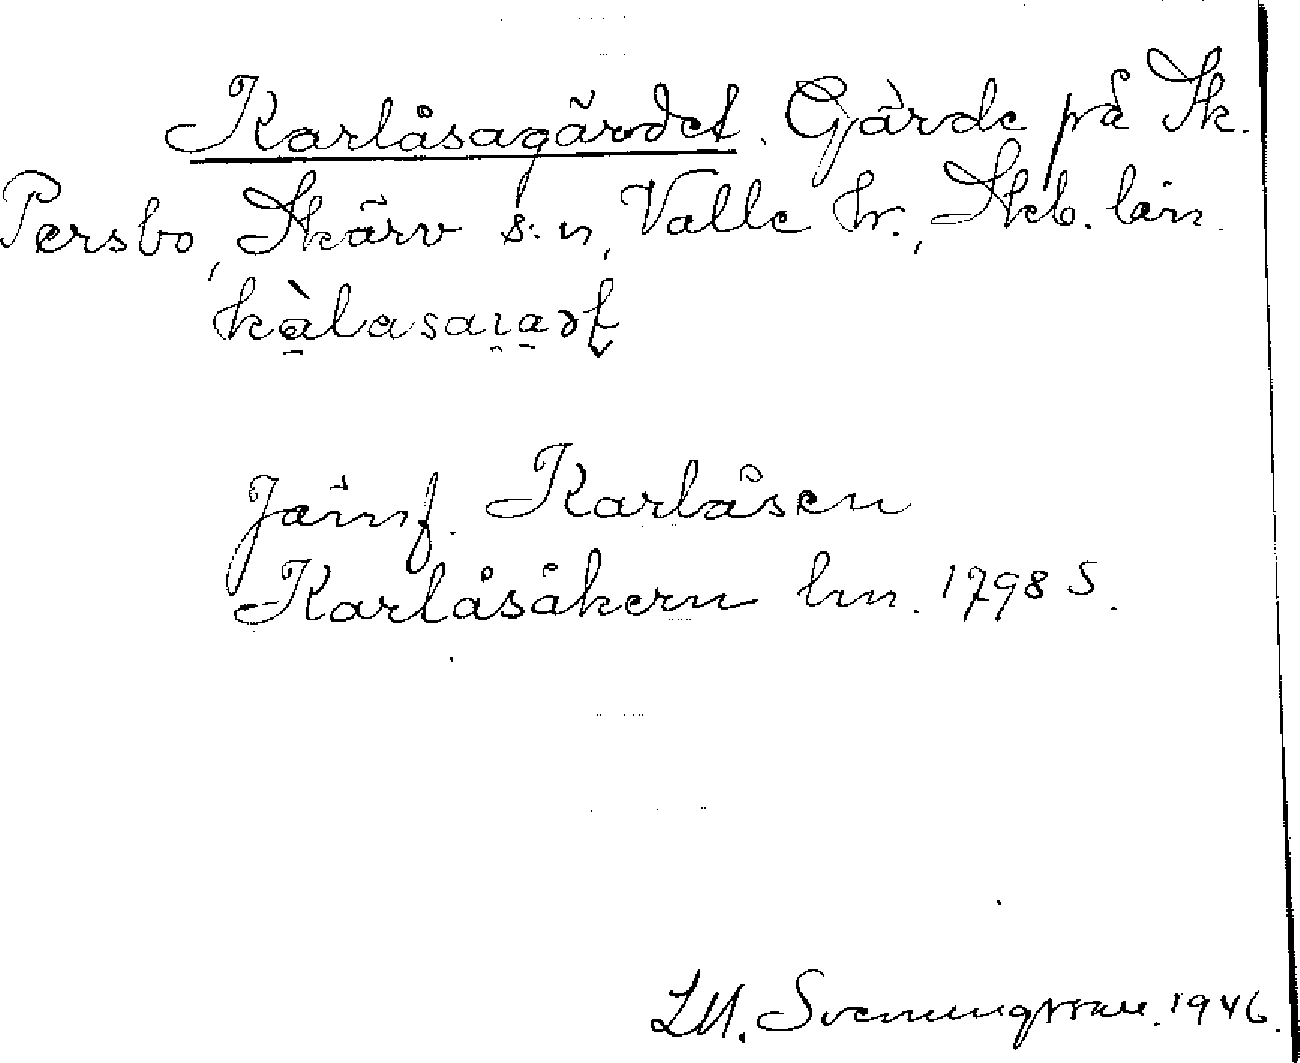 Karlåsagärdet. Gärde på Sk.
Persbo, Skärv s:n, Valle hr., Skb. län.
Jämf. Karlåsen
Karlåsåkern hm. 1798 S.
LM. Svenungsson. 1946.